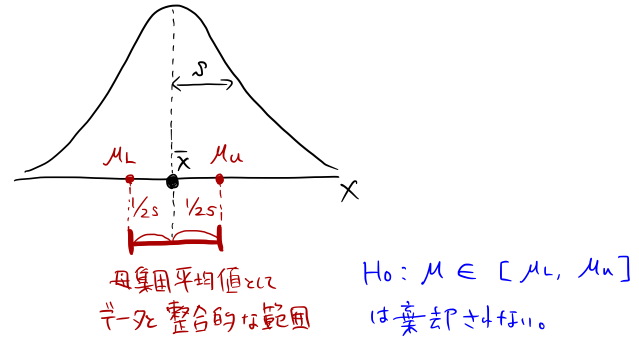 s
μL
x̄
μu
x
1/2s
1/2s
母集団平均値として
データと整合的な範囲
H0: μ ∈ [μL, μu]
は棄却されない。